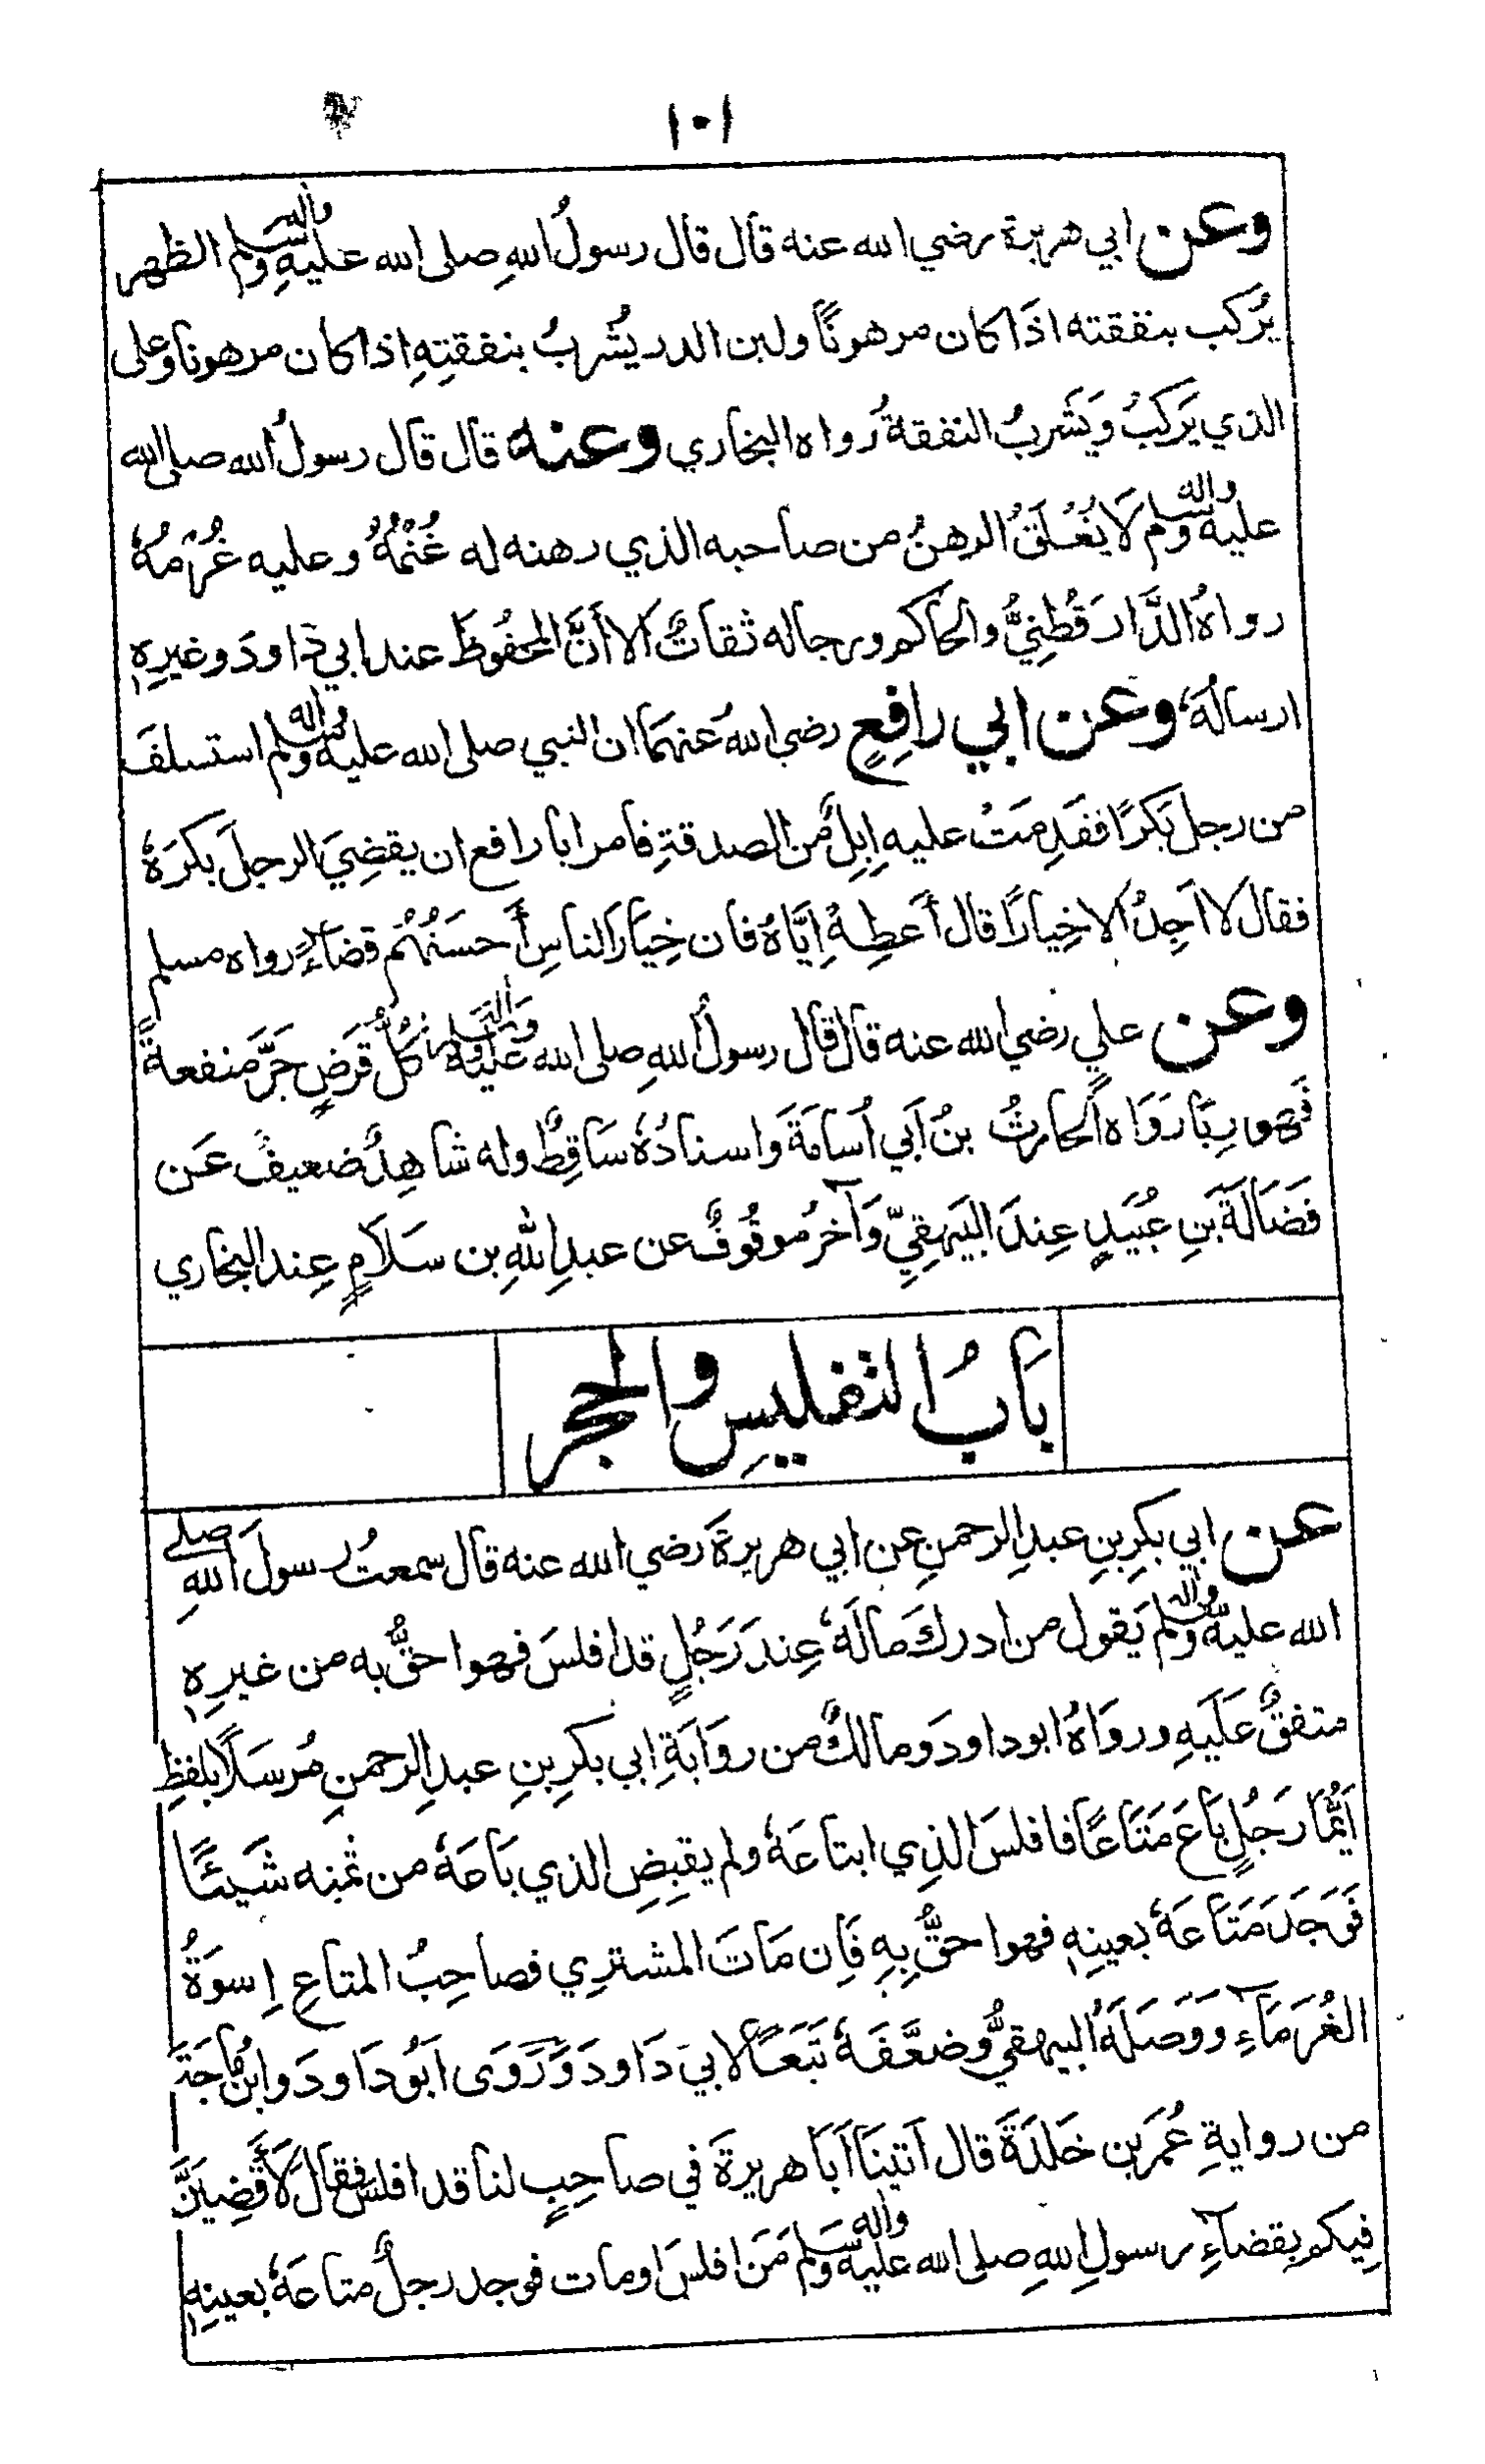 ١٠١
وعن ابي هريرة رضي الله عنه قال قال رسولُ اللهِ صلى الله عليهِ واله وسلم الظهر
يُركب بنفقته اذَا كان مرهونًا ولبن الدر يُشربُ بنفقتِهِ اذا كان مرهونا وعلى
الذي يَركبُ وَيَشَربُ النفقةُ رواه البخاري وعنه قال قال رسولُ الله صلى الله
عليه واله وسلم لَا يَغْلَقُ الرهنُ من صاحبه الذي رهنه له غُنْمُهُ وعليه غُرْمُهُ
رواهُ الدَّارَقُطنِيُّ والحاكم ورجاله ثقاتٌ الا أَنَّ المحفُوظَ عند ابي داودَ وغيرِهِ
ارسالُهُ وعن ابي رافِعٍ رضي اللهُ عنهمَا ان النبي صلى الله عليه واله وسلم استسلفَ
من رجلٍ بَكرًا فقَدِمَتْ عليه اِبِلٌ من الصدقةِ فامر ابا رافع ان يقضِيَ الرجلَ بكرَهُ
فقال لا اَجِدُ الا خِيارًا قال أَعطِهِ اِيَّاهُ فان خِيَارَ الناسِ أَحسَنُهُم قضاءً رواه مسلم
وعن علي رضي الله عنه قال قال رسولُ اللهِ صلى الله عليه واله وسلم كلُّ قَرَضٍ جَرَّ مَنفعةً
فَهو رِبًا رَوَاه الحارثُ بنُ اَبي اُسَامَةَ وَاسنادُهُ سَاقِطٌ وله شاهِدٌ ضعيفٌ عَن
فَضَالَةَ بنِ عُبَيدٍ عِندَ البَيهقِيِّ وَآخرُ موقُوفٌ عن عبدِ اللهِ بن سَلَامٍ عِند البخاري
بَابُ التفليسِ والحجر
عن ابي بكرِ بنِ عبدِ الرحمنِ عن ابي هريرةَ رضي الله عنه قال سمعتُ رسولَ اللهِ صلى
الله عليه واله وسلم يَقول من ادركَ مالَهُ عِندَ رَجُلٍ قد افلسَ فهو احقُّ به من غيرِهِ
متفقٌ عَلَيهِ ورواهُ ابو داودَ ومالكٌ من روايَةِ ابي بكرِ بنِ عبدِ الرحمنِ مُرسَلًا بلفظِ
اَيُّمَا رَجُلٍ بَاعَ مَتَاعًا فافلسَ الذِي ابتاعَهُ ولم يقبِضِ الذي بَاعَهُ من ثمنِه شَيئًا
فَوَجَدَ مَتَاعَهُ بعينِهِ فهو احقُّ بِهِ فَاِن مَاتَ المشترِي فصاحِبُ المتاعِ اِسوَةُ
الغُرَمَآءِ وَوَصَلَهُ البيهقيُّ وضعَّفَهُ تَبَعًا لابي دَاودَ وَرَوَى اَبُو دَاودَ وابنُ مَاجَةَ
من روايةِ عُمَرَ بنِ خَلدَةَ قال اَتينَا اَبَا هريرةَ في صاحِبٍ لنا قد افلسَ فقال لَاَقْضِيَنَّ
فِيكم بِقضآءِ رسولِ اللهِ صلى الله عليه واله وسلم مَن افلسَ او مات فوجد رجلٌ متاعَهُ بعينِهِ